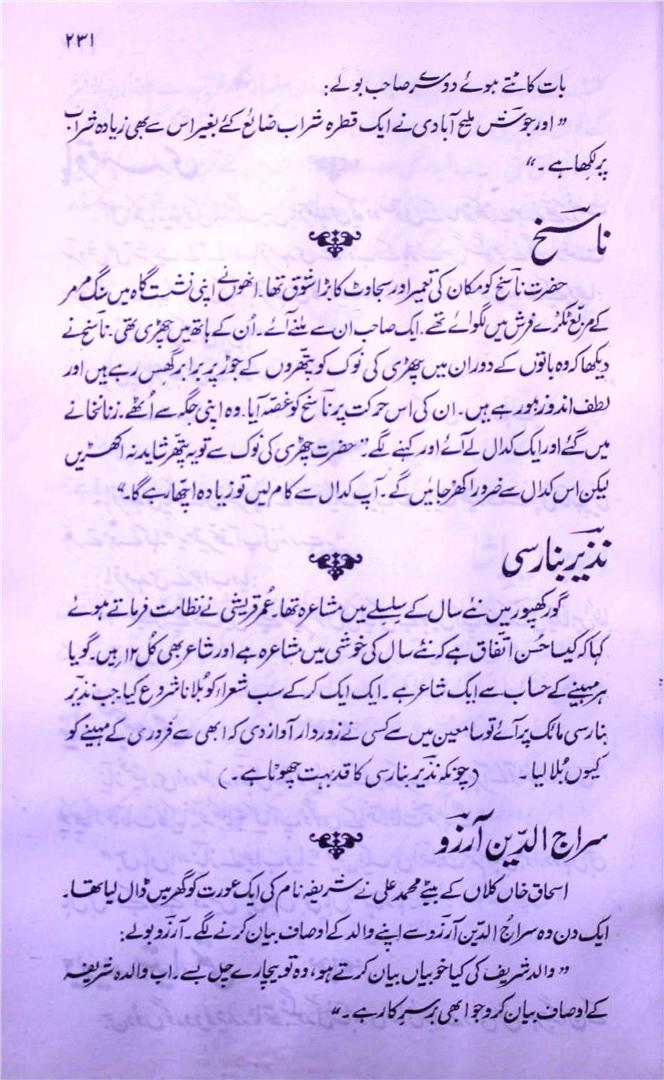 ۲۳۱
بات کاٹتے ہوئے دوسکر صاحب بولے:
” اور جوشؔ ملیح آبادی نے ایک قطرہ شراب ضائع کئے بغیر اس سے بھی زیادہ شراب
پر لکھا ہے ۔“
ناسخؔ
حضرت ناسخؔ کو مکان کی تعمیر اور سجاوٹ کا بڑا شوق تھا۔ انھوں نے اپنی نشست گاہ میں سنگ مرمر
کے مربّع ٹکڑے فرش میں لگوائے تھے۔ ایک صاحب ان سے ملنے آئے۔ اُن کے ہاتھ میں چھڑی تھی۔ ناسخؔ نے
دیکھا کہ وہ باتوں کے دوران میں چھڑی کی نوک کو پتھروں کے جوڑ پر برابر گھِس رہے ہیں اور
لطف اندوز ہو رہے ہیں۔ ان کی اس حرکت پر ناسخؔ کو غصّہ آیا۔ وہ اپنی جگہ سے اُٹھے۔ زنانخانے
میں گئے اور ایک کدال لے آئے اور کہنے لگے۔ ”حضرت چھڑی کی نوک سے تو یہ پتھر شاید نہ اکھڑیں
لیکن اس کدال سے ضرور اکھڑ جائیں گے۔ آپ کدال سے کام لیں تو زیادہ اچھا رہے گا۔“
نذیرؔ بنارسی
گورکھپور میں نئے سال کے سلسلے میں مشاعرہ تھا۔ عمر قریشی نے نظامت فرماتے ہوئے
کہا کہ کیسا حُسنِ اتفاق ہے کہ نئے سال کی خوشی میں مشاعرہ ہے اور شاعر بھی کُل ۱۲ ہیں۔ گویا
ہر مہینے کے حساب سے ایک شاعر ہے ۔ ایک ایک کر کے سب شعراء کو بُلانا شروع کیا۔ جب نذیرؔ
بنارسی مائک پر آئے تو سامعین میں سے کسی نے زوردار آواز دی کہ ابھی سے فروری کے مہینے کو
کیوں بُلا لیا ۔ (چونکہ نذیرؔ بنارسی کا قد بہت چھوٹا ہے۔)
سراج الدّین آرزوؔ
اسحاق خاں کلاں کے بیٹے محمد علی نے شریفہ نام کی ایک عورت کو گھر میں ڈال لیا تھا۔
ایک دن وہ سراجُ الدّین آرزوؔ سے اپنے والد کے اوصاف بیان کرنے لگے۔ آرزوؔ بولے:
” والد شریف کی کیا خوبیاں بیان کرتے ہو، وہ تو بیچارے چل بسے۔ اب والدہ شریفہ
کے اوصاف بیان کرو جو ابھی برسرِ کار ہے ۔“